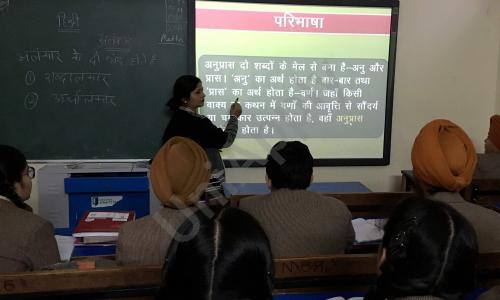 हिन्दी
अलंकार
अलंकार के दो भेद होते हैं
① शब्दालंकार
② अर्थालंकार
परिभाषा
अनुप्रास दो शब्दों के मेल से बना है–अनु और
प्रास। 'अनु' का अर्थ होता है बार-बार तथा
'प्रास' का अर्थ होता है–वर्ण। जहाँ किसी
वाक्य कथन में वर्णों की आवृत्ति से सौंदर्य
या उत्पन्न होता है, वहाँ अनुप्रास
होता है।